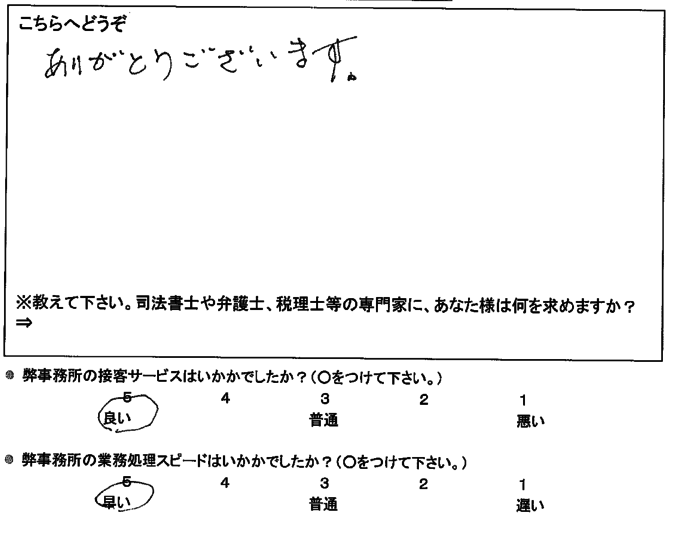 こちらへどうぞ
ありがとうございます。
※教えて下さい。司法書士や弁護士、税理士等の専門家に、あなた様は何を求めますか？
⇒
● 弊事務所の接客サービスはいかがでしたか？(〇をつけて下さい。)
5 4 3 2 1
良い 普通 悪い
● 弊事務所の業務処理スピードはいかがでしたか？(〇をつけて下さい。)
5 4 3 2 1
早い 普通 遅い